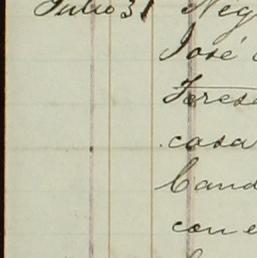 Julio 31 Neg
José
Teresa
casa
Cand
con e